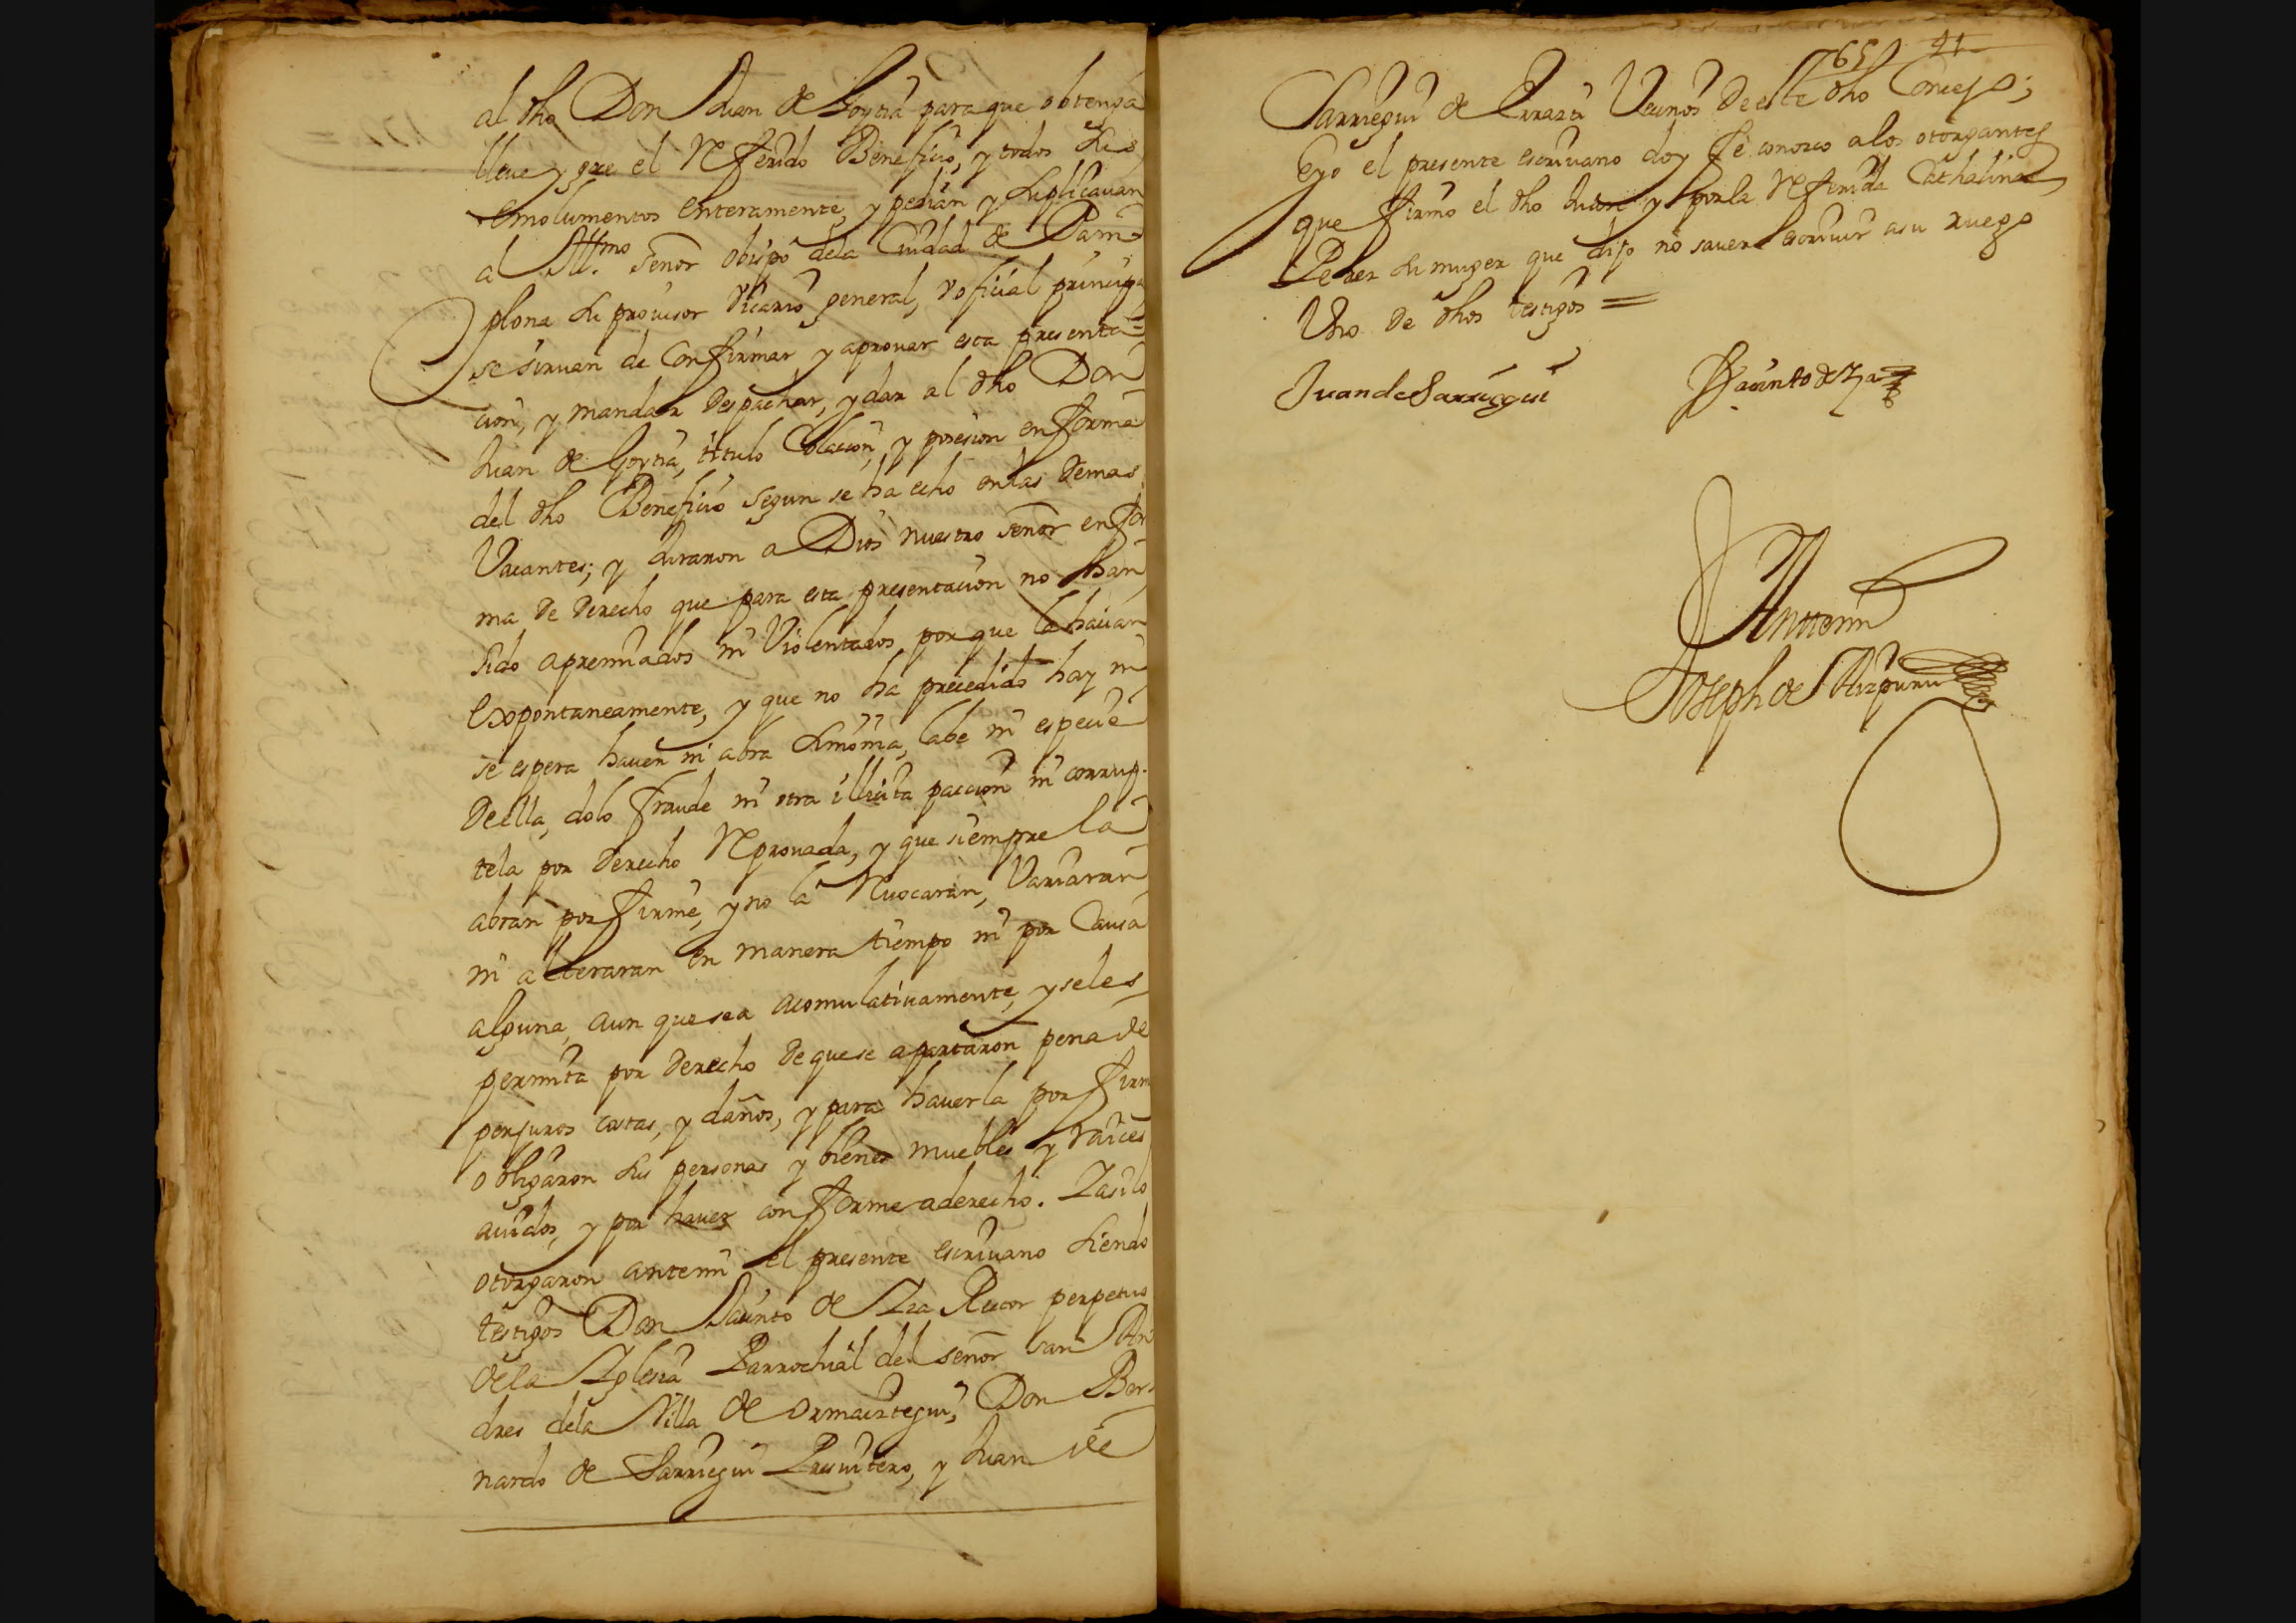 al dho Don Juan de Goytia para que obtenga
lleue y goze el Referido Beneficio, y todos sus
Emolumentos Enteramente, y pedian y suplicauan
al Ill.mo señor obispo dela Ciudad de Pam=
plona su prouisor Vicario general, y oficial principal
se siruan de Confirmar y aprouar esta presenta=
cion, y mandar despachar, y dar al dho Don
Juan de Goytia, titulo Colacion, y posesion en forma
del dho Beneficio segun se ha echo en las demas
Vacantes; y Juraron a Dios nuestro señor en for
ma de derecho que para esta presentacion no han
sido apremiados ni Violentados, porque la haçian
Expontaneamente, y que no ha precedido hay ni
se espera hauer ni abra simonia, labe ni especie
de ella, dolo fraude ni otra illicita paccion ni corrup-
tela por derecho Reprouada, y que siempre la
abran por firme, y no la Reuocaran, Variaran
ni alteraran en manera tiempo ni por Causa
alguna, aun que sea acomulatiuamente, y se les
permita por derecho de que se apartaron pena de
perjuros costas, y daños, y para hauerla por firm
obligaron sus personas y bienes muebles y raices
auidos, y por hauer conforme a derecho. Y asi lo
otorgaron antemi el presente escriuano siendo
testigos Don Jacinto de Yza Retor perpetuo
dela Yglesia Parrochial del señor san An
dres dela Villa de ormaiztegui, Don Ber-
nardo de Sarriegui Presuitero, y Juan de
765 41
Sarriegui de Errazu Vecinos de este dho Concejo;
E yo el presente escriuano doy fe conozco a los otorgantes
que firmo el dho Juan y por la Referida Cathalina
Perez su muger que dijo no sauer escriuir a su ruego
Vno de dhos testigos =
Juan de Sarriegui
Jacinto de Yza
Antemi
Joseph de Aizpuru